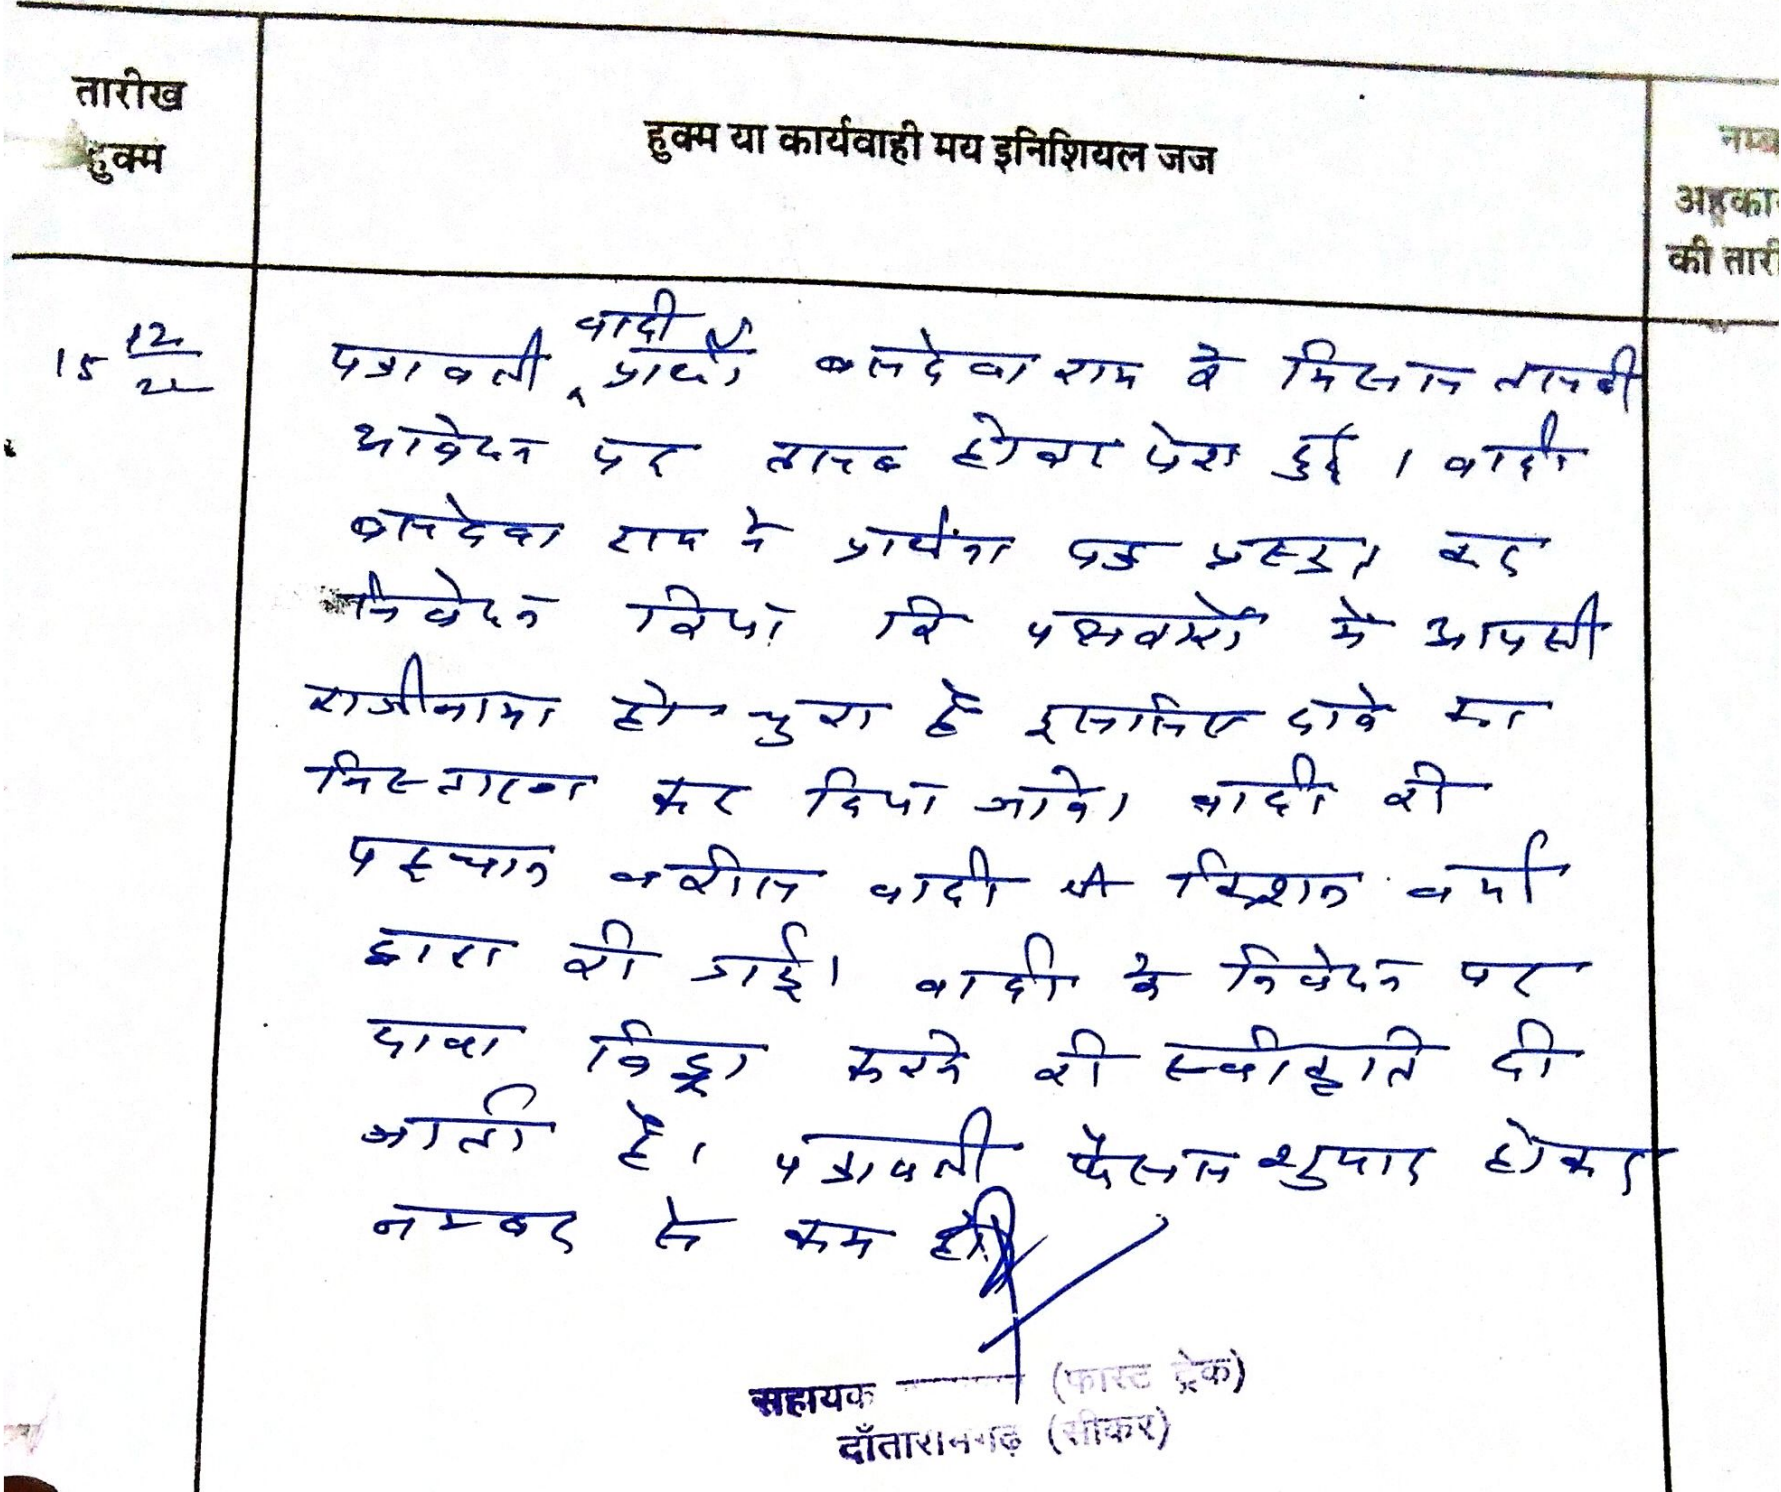 तारीख
हुक्म
हुक्म या कार्यवाही मय इनिशियल जज
नम्ब
अहका
की तारी
15 12
वादी
पत्रावली प्रार्थी बलदेवा राम के मिसल तलबी
आवेदन पर तलब होकर पेश हुई । वादी
बलदेवा राम ने प्रार्थना पत्र प्रस्तुत कर
निवेदन किया कि पक्षकारों में आपसी
राजीनामा हो चुका है इसलिए दावे का
निस्तारण कर दिया जावे। वादी की
पहचान वकील वादी श्री किशन वर्मा
द्वारा की गई। वादी के निवेदन पर
दावा विड्रा करने की स्वीकृति दी
जाती है। पत्रावली फैसल शुमार होकर
नम्बर से कम हो
सहायक (फास्ट ट्रेक)
दाँतारामगढ़ (सीकर)